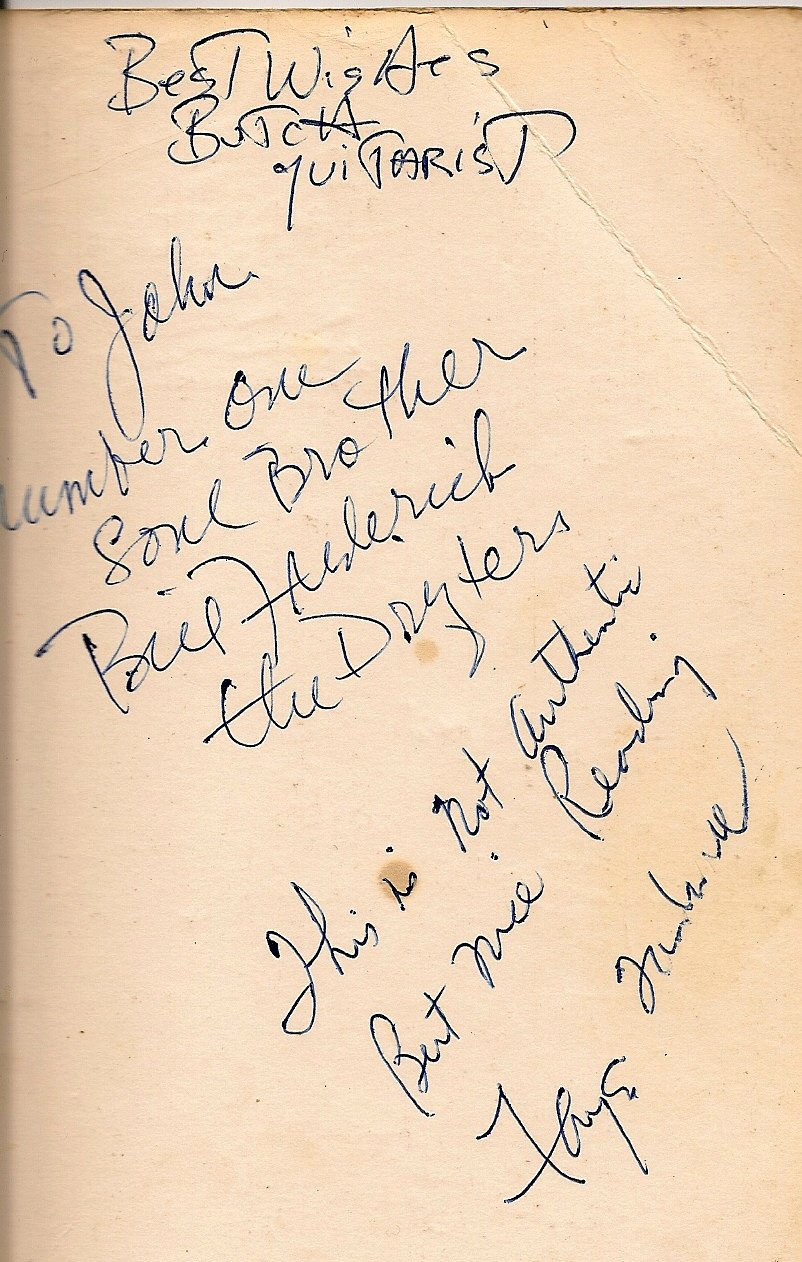 Best Wishes
Butch
guitarist
To John
number One
Soul Brother
Bill Frederick
the Drifters
This is Not Authentic
But nice Reading
Faye